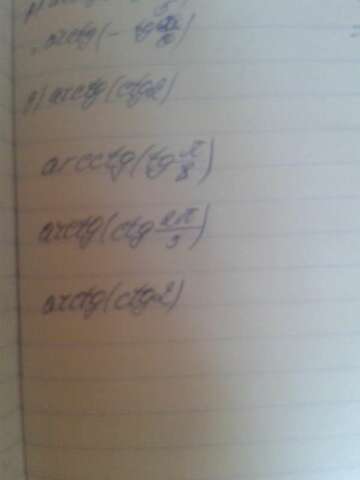 arctg(-tg
arctg(ctg2)
arcctg(tg π/8)
arctg(ctg 2π/3)
arctg(ctg2)